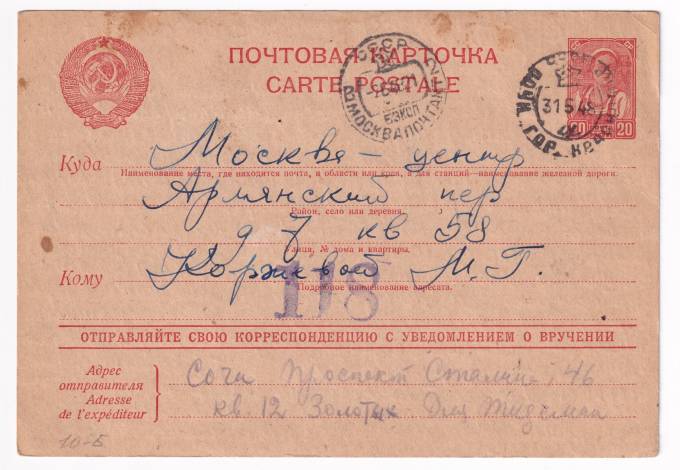 ПОЧТОВАЯ КАРТОЧКА
CARTE POSTALE
СССР
МОСКВА ПОЧТАМТ
31 5 48
20 20
Куда Москва - центр
Наименование места, где находится почта, и области или края, а для станций—наименование железной дороги.
Армянский пер
Район, село или деревня.
д 7 кв 58
Улица, № дома и квартиры.
Кому Коржевой М.Г.
Подробное наименование адресата.
118
ОТПРАВЛЯЙТЕ СВОЮ КОРРЕСПОНДЕНЦИЮ С УВЕДОМЛЕНИЕМ О ВРУЧЕНИИ
Адрес
отправителя
Adresse
de l'expéditeur
Сочи Проспект Сталина, 46
кв. 12 Золотых Для
10-Б